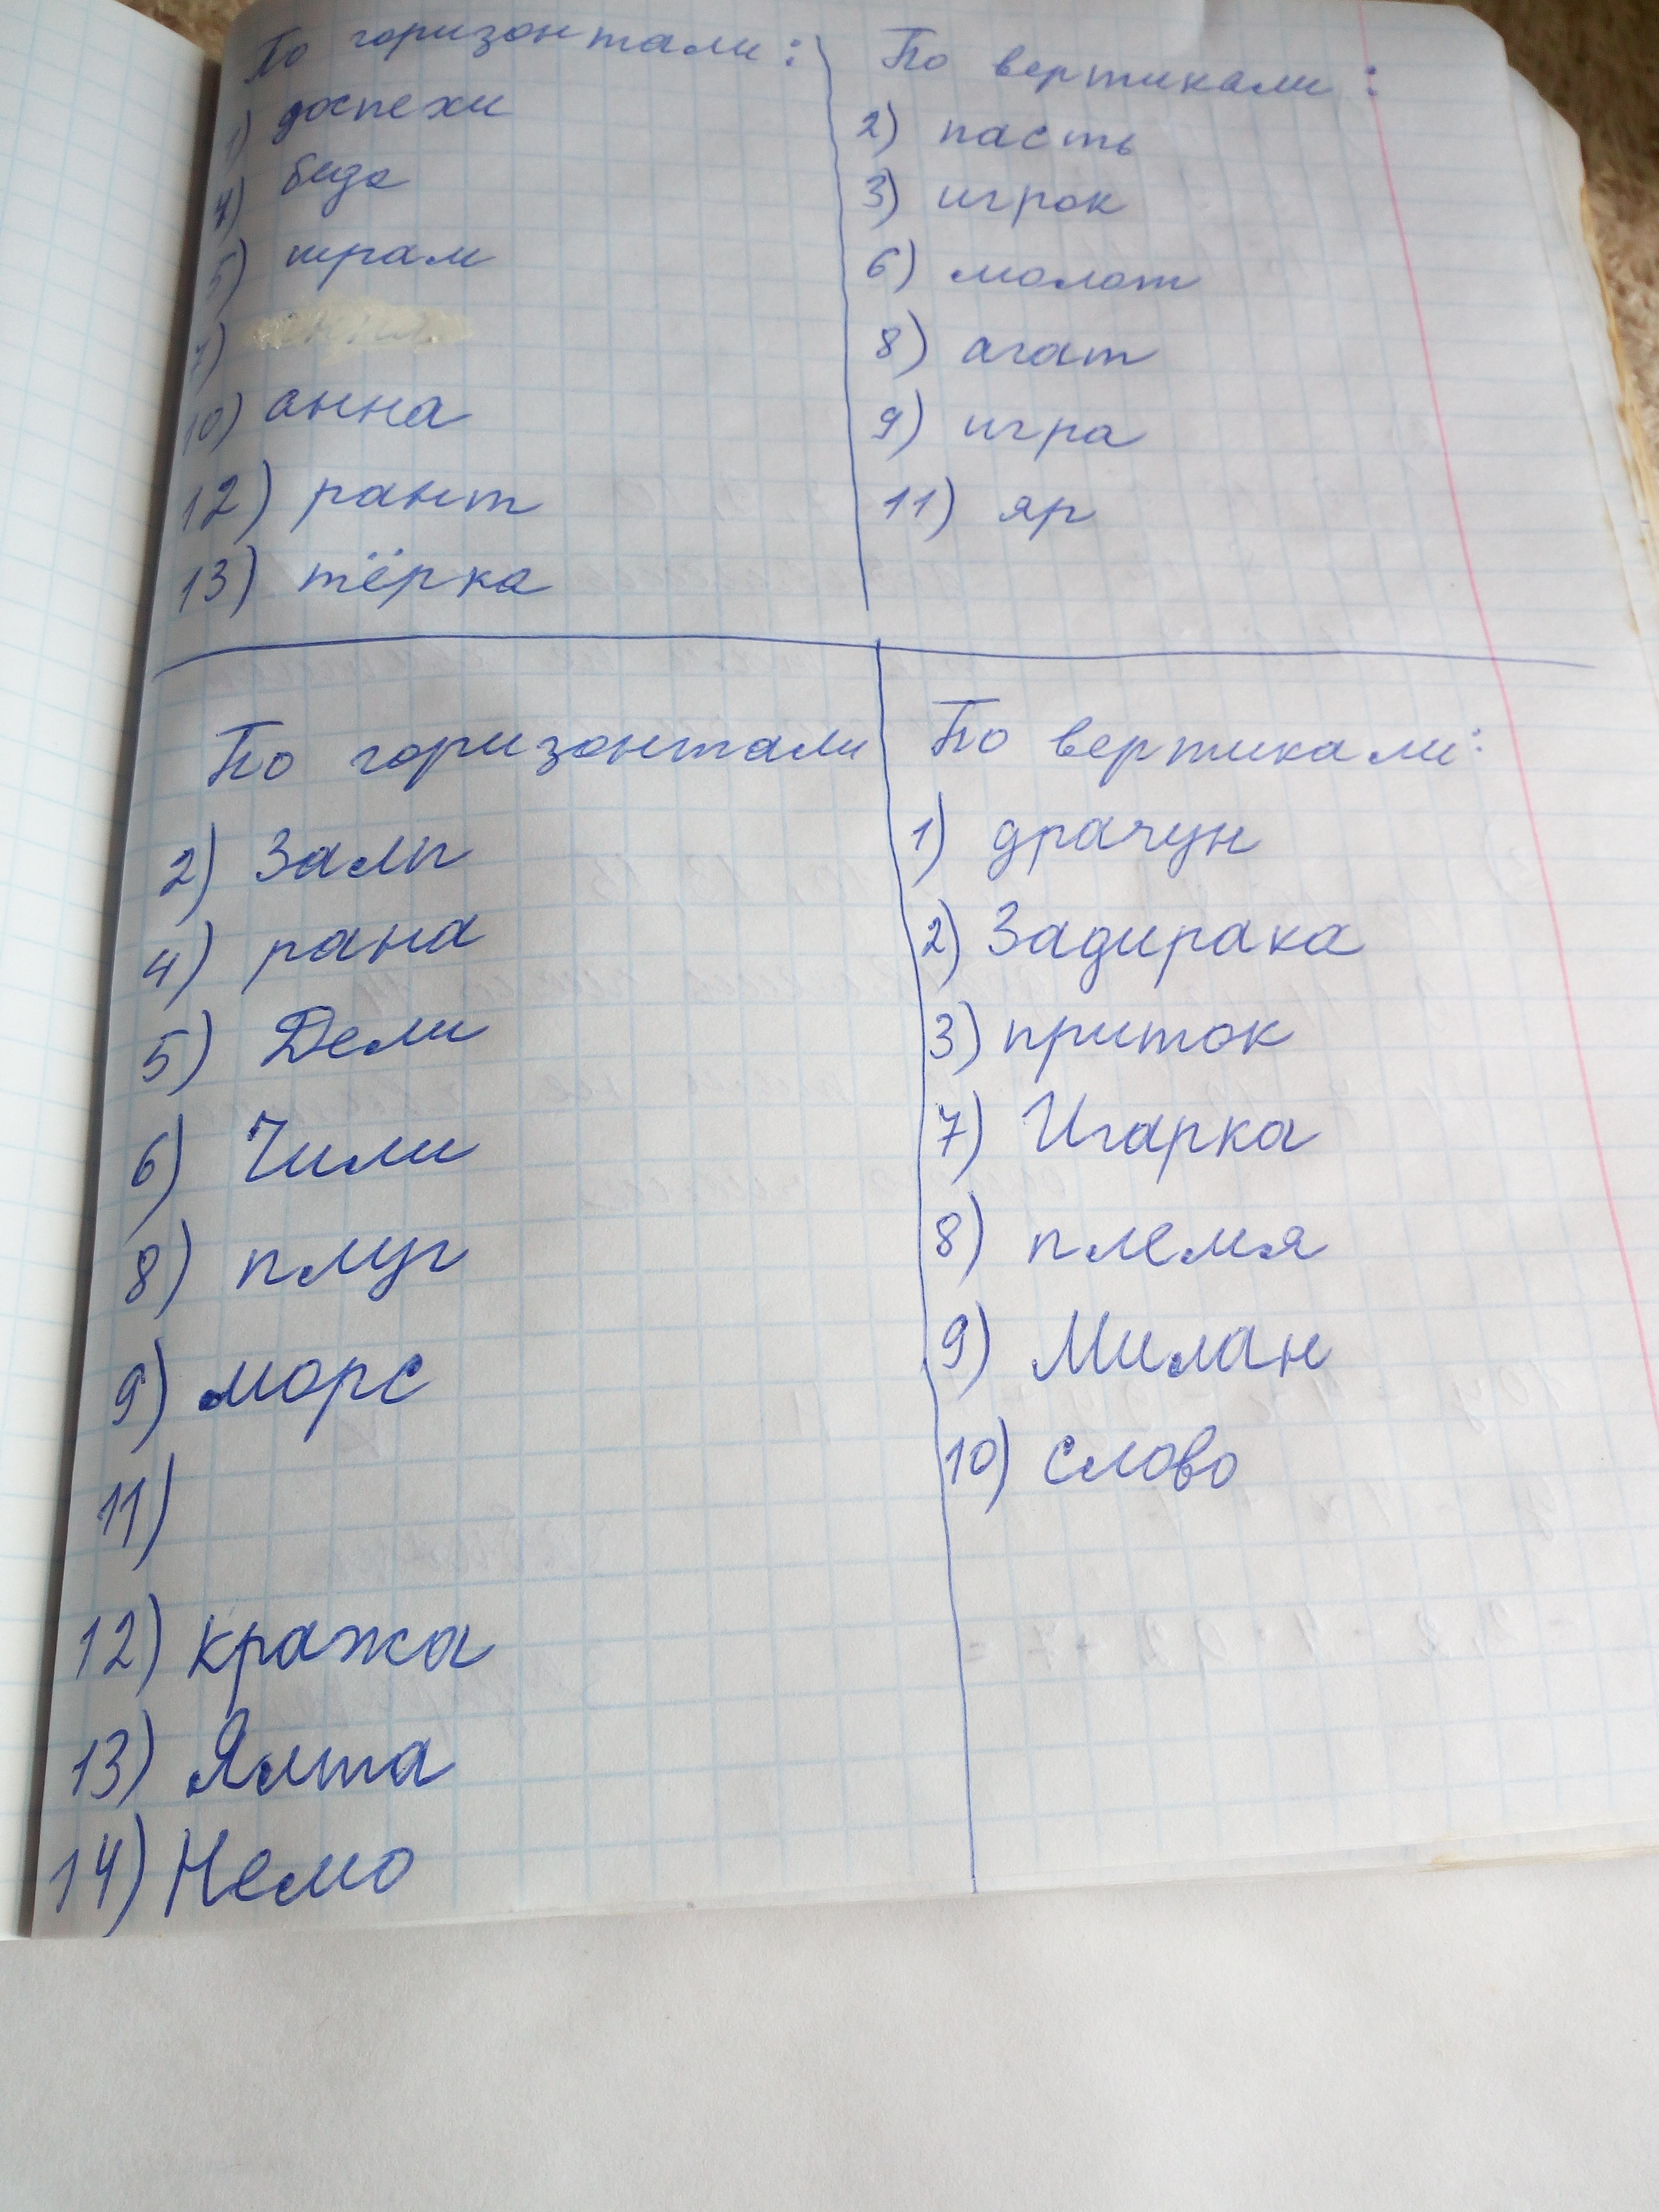 По горизонтали:
1) доспехи
4) беда
5) трам
7)
10) анна
12) рант
13) тёрка
По вертикали:
2) пасть
3) игрок
6) молот
8) агат
9) игра
11) яр
По горизонтали
2) Залп
4) рана
5) Дели
6) Чили
8) плуг
9) морс
11)
12) кража
13) Ялта
14) Немо
По вертикали:
1) драчун
2) Задирака
3) приток
7) Игарка
8) племя
9) Милан
10) слово